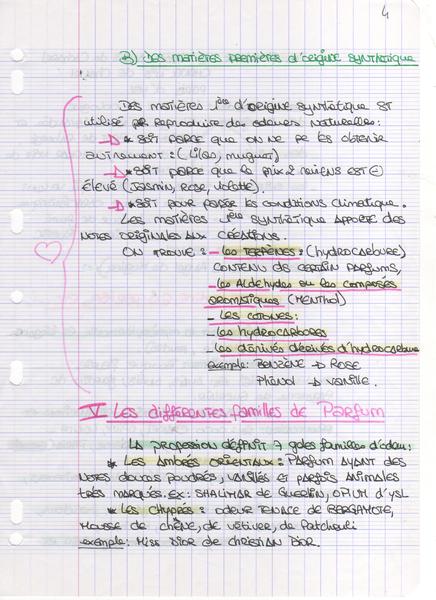 4
B) Des matières premières d'origine synthétique
Des matières 1ère d'origine synthétique st
utilisé pr Reproduire des odeurs naturelles:
→ * soit parce que on ne pe les obtenir
autrement : (lilas, muguet)
→ * soit parce que le prix 2 reviens est ⊖
élevé (Jasmin, rose, violette).
→ * soit pour parer les conditions climatique.
Les matières 1ère synthétique apporte des
notes originales aux créations.
On trouve : - Les Terpènes : (hydrocarbure)
contenu ds certain parfums,
- Les Aldehydes ou les composés
aromatiques (menthol)
- Les cotones :
- les hydrocarbures
- Les dérivés d'hydrocarbure
exemple: Benzène → Rose
Phénol → Vanille.
V Les différentes familles de Parfum
La profession définit 7 gdes familles d'odeur:
* Les ambrés orientaux : Parfum ayant des
notes douces poudrés, vanillés et parfois animales
très marqués. ex : Shalimar de Guerlin, Opium d'YSL
* Les chyprés : odeur tenace de Bergamote,
Mousse de chêne, de vétiver, de Patchouli
exemple: Miss Dior de Christian Dior.